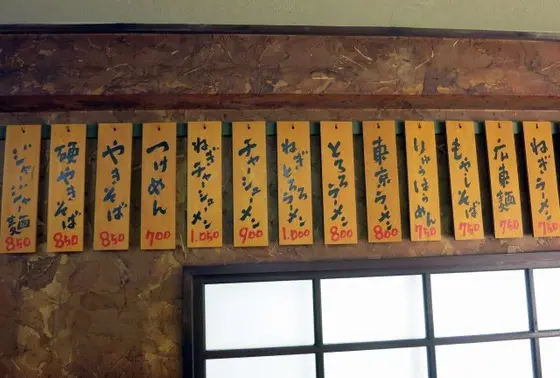 ねぎラーメン
750
広東麺
750
もやしそば
750
750
東京ラーメン
800
とろろラーメン
800
ねぎとろろラーメン
1.000
チャーシューメン
900
ねぎチャーシューメン
1.050
つけめん
700
やきそば
850
硬やきそば
850
ジャージャー麺
850